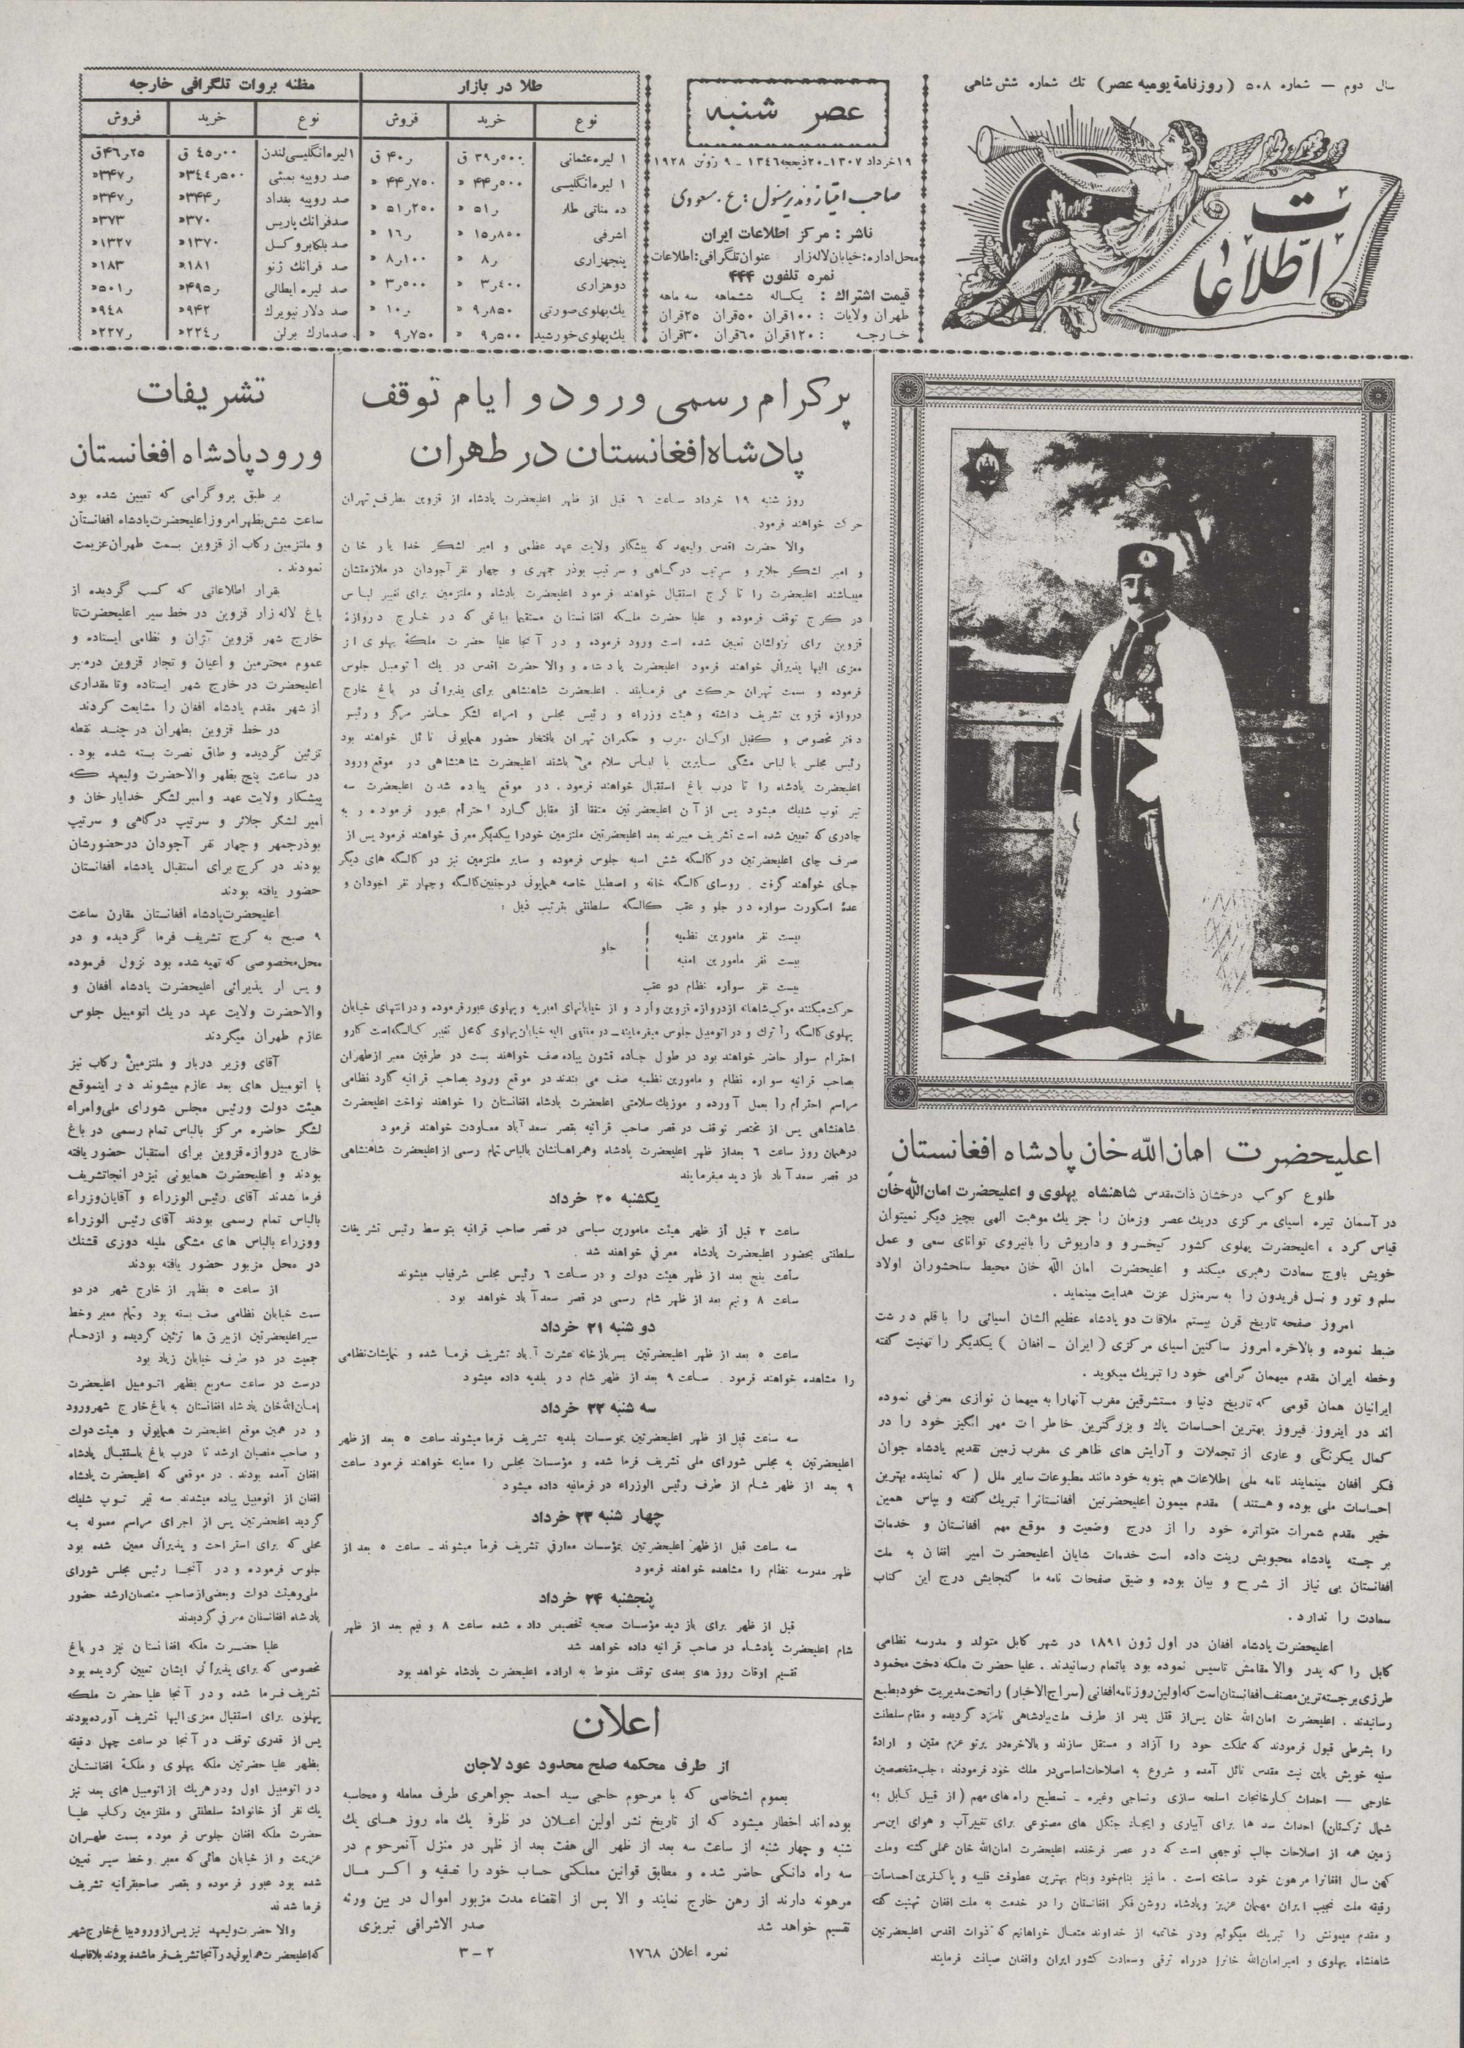 سال دوم — شماره ۵۰۸ (روزنامهٔ یومیه عصر) تك شماره شش شاهی
اطلاعات
عصر شنبه
۱۹ خرداد ۱۳۰۷ - ۲۰ ذیحجه ۱۳۴۶ - ۹ ژوئن ۱۹۲۸
صاحب امتیاز و مدیر مسئول : ع . مسعودی
ناشر : مرکز اطلاعات ایران
محل اداره : خیابان لاله زار عنوان تلگرافی : اطلاعات
نمره تلفون ۴۴۴
قیمت اشتراك : یکساله ششماهه سه ماهه
طهران و ولایات : ۱۰۰ قران ۵۰ قران ۲۵ قران
خارجه : ۱۲۰ قران ۶۰ قران ۳۰ قران
طلا در بازار
نوع خرید فروش
۱ لیره عثمانی
۱ لیره انگلیسی
ده مناتی طلا
اشرفی
پنجهزاری
دوهزاری
یك پهلوی صورتی
یك پهلوی خورشید
مظنه بروات تلگرافی خارجه
نوع خرید فروش
۱ لیره انگلیسی لندن
صد روپیه بمبئی
صد روپیه بغداد
صد فرانك پاریس
صد بلکا بروکسل
صد فرانك ژنو
صد لیره ایطالی
صد دلار نیویرك
صد مارك برلن
اعلیحضرت امان الله خان پادشاه افغانستان
طلوع کوکب درخشان ذات مقدس شاهنشاه پهلوی و اعلیحضرت امان الله خان
در آسمان تیره اسیای مرکزی دریك عصر وزمان را جز یك موهبت الهی بچیز دیگر نمیتوان
قیاس کرد ، اعلیحضرت پهلوی کشور کیخسرو و داریوش را بانیروی توانای سعی و عمل
خویش باوج سعادت رهبری میکند و اعلیحضرت امان الله خان محیط سلحشوران اولاد
سلم و تور و نسل فریدون را به سرمنزل عزت هدایت مینماید .
امروز صفحه تاریخ قرن بیستم ملاقات دو پادشاه عظیم الشان اسیائی را با قلم درشت
ضبط نموده و بالاخره امروز ساکنین اسیای مرکزی ( ایران ـ افغان ) یکدیگر را تهنیت گفته
وخطه ایران مقدم میهمان گرامی خود را تبریك میگوید .
ایرانیان همان قومی که تاریخ دنیا و مستشرقین مغرب آنهارا به میهمان نوازی معرفی نموده
اند در اینروز فیروز بهترین احساسات پاك و بزرگترین خاطرات مهر انگیز خود را در
کمال یکرنگی و عاری از تجملات و آرایش های ظاهری مغرب زمین تقدیم پادشاه جوان
فکر افغان مینمایند نامه ملی اطلاعات هم بنوبه خود مانند مطبوعات سایر ملل ( که نماینده بهترین
احساسات ملی بوده و هستند ) مقدم میمون اعلیحضرتین افغانستانرا تبریك گفته و بپاس همین
خیر مقدم شمرات متواتره خود را از درج وضعیت و موقع مهم افغانستان و خدمات
بر جسته پادشاه محبوبش زینت داده است خدمات شایان اعلیحضرت امیر افغان به ملت
افغانستان بی نیاز از شرح و بیان بوده و ضیق صفحات نامه ما گنجایش درج این کتاب
سعادت را ندارد .
اعلیحضرت پادشاه افغان در اول ژون ۱۸۹۱ در شهر کابل متولد و مدرسه نظامی
کابل را که پدر والا مقامش تاسیس نموده بود باتمام رسانیدند . علیا حضرت ملکه دخت محمود
طرزی برجسته ترین مصنف افغانستان است که اولین روزنامه افغانی (سراج الاخبار) را تحت مدیریت خود بطبع
رسانیدند . اعلیحضرت امان الله خان پس از قتل پدر از طرف ملت بپادشاهی نامزد گردیده و مقام سلطنت
را بشرطی قبول فرمودند که مملکت خود را آزاد و مستقل سازند و بالاخره در پرتو عزم متین و ارادهٔ
سنیه خویش باین نیت مقدس نائل آمده و شروع به اصلاحات اساسی در ملك خود فرمودند : جلب متخصصین
خارجی — احداث کارخانجات اسلحه سازی ونساجی وغیره ـ تسطیح راه های مهم ( از قبیل کابل به
شمال ترکستان) احداث سد ها برای آبیاری و ایجاد جنگل های مصنوعی برای تغییر آب و هوای این سر
زمین همه از اصلاحات جالب توجهی است که در عصر فرخنده اعلیحضرت امان الله خان عملی گشته وملت
کهن سال افغانرا مرهون خود ساخته است . ما نیز بنام خود وبنام بهترین عطوفت قلبیه و پاکترین احساسات
رقیقه ملت نجیب ایران مهمان عزیز وپادشاه روشن فکر افغانستان را در خدمت به ملت افغان تهنیت گفته
و مقدم میمونش را تبریك میگوئیم ودر خاتمه از خداوند متعال خواهانیم که ذوات اقدس اعلیحضرتین
شاهنشاه پهلوی و امیر امان الله خانرا درراه ترقی وسعادت کشور ایران وافغان صیانت فرمایند
پرگرام رسمی ورود و ایام توقف
پادشاه افغانستان در طهران
روز شنبه ۱۹ خرداد ساعت ۶ قبل از ظهر اعلیحضرت پادشاه از قزوین بطرف تهران
حرکت خواهند فرمود.
والا حضرت اقدس ولیعهد که پیشکار ولایت عهد عظمی و امیر لشکر خدا یار خان
و امیر لشکر جلایر و سرتیپ درگاهی و سرتیپ بوذر جمهری و چهار نفر آجودان در ملازمتشان
میباشند اعلیحضرت را تا کرج استقبال خواهند فرمود اعلیحضرت پادشاه و ملتزمین برای تغییر لباس
در کرج توقف فرموده و علیا حضرت ملکه افغانستان مستقیما بباغی که در خارج دروازهٔ
قزوین برای نزولشان تعیین شده است ورود فرموده و در آنجا علیا حضرت ملکهٔ پهلوی از
معزی الیها پذیرائی خواهند فرمود اعلیحضرت پادشاه و والا حضرت اقدس در یك اتومبیل جلوس
فرموده و سمت تهران حرکت می فرمایند . اعلیحضرت شاهنشاهی برای پذیرائی در باغ خارج
دروازه قزوین تشریف داشته و هیئت وزراء و رئیس مجلس و امراء لشکر حاضر مرکز و رئیس
دفتر مخصوص و کفیل ارکان حرب و حکمران تهران بافتخار حضور همایونی نائل خواهند بود
رئیس مجلس با لباس مشکی سایرین با لباس سلام می باشند اعلیحضرت شاهنشاهی در موقع ورود
اعلیحضرت پادشاه را تا درب باغ استقبال خواهند فرمود . در موقع پیاده شدن اعلیحضرت سه
تیر توپ شلیك میشود پس از آن اعلیحضرتین متفقا از مقابل گارد احترام عبور فرموده رو به
چادری که تعیین شده است تشریف میبرند بعد اعلیحضرتین ملتزمین خودرا بیکدیگر معرفی خواهند فرمود پس از
صرف چای اعلیحضرتین در کالسکه شش اسبه جلوس فرموده و سایر ملتزمین نیز در کالسکه های دیگر
جای خواهند گرفت . روسای کالسکه خانه و اصطبل خاصه همایونی در جنبین کالسکه و چهار نفر اجودان و
عدهٔ اسکورت سواره در جلو و عقب کالسکه سلطنتی بترتیب ذیل :
بیست نفر مامورین نظمیه
جلو
بیست نفر مامورین امنیه
بیست نفر سواره نظام دو عقب
حرکت میکنند موکب شاهانه از دروازه قزوین وارد و از خیابانهای امیریه و پهلوی عبور فرموده و در انتهای خیابان
پهلوی کالسکه را ترك و در اتومبیل جلوس میفرمایند ـ در منتهی الیه خیابان پهلوی که محل تغییر کالسکه است گارد
احترام سوار حاضر خواهند بود در طول جاده قشون پیاده صف خواهند بست در طرفین معبر از طهران
بصاحب قرانیه سواره نظام و مامورین نظمیه صف می بندند در موقع ورود بصاحب قرانیه گارد نظامی
مراسم احترام را بعمل آورده و موزیك سلامتی اعلیحضرت پادشاه افغانستان را خواهند نواخت اعلیحضرت
شاهنشاهی پس از مختصر توقف در قصر صاحب قرانیه بقصر سعد آباد معاودت خواهند فرمود
درهمان روز ساعت ۶ بعد از ظهر اعلیحضرت پادشاه وهمراهانشان بالباس تمام رسمی از اعلیحضرت شاهنشاهی
در قصر سعد آباد باز دید میفرمایند
یکشنبه ۲۰ خرداد
ساعت ۲ قبل از ظهر هیئت مامورین سیاسی در قصر صاحب قرانیه بتوسط رئیس تشریفات
سلطنتی بحضور اعلیحضرت پادشاه معرفی خواهند شد .
ساعت پنج بعد از ظهر هیئت دولت و در ساعت ۶ رئیس مجلس شرفیاب میشوند
ساعت ۸ ونیم بعد از ظهر شام رسمی در قصر سعد آباد خواهد بود .
دو شنبه ۲۱ خرداد
ساعت ۵ بعد از ظهر اعلیحضرتین بسربازخانه عشرت آباد تشریف فرما شده و نمایشات نظامی
را مشاهده خواهند فرمود . ساعت ۹ بعد از ظهر شام در بلدیه داده میشود
سه شنبه ۲۲ خرداد
سه ساعت قبل از ظهر اعلیحضرتین بموسسات بلدیه تشریف فرما میشوند ساعت ۵ بعد از ظهر
اعلیحضرتین به مجلس شورای ملی تشریف فرما شده و مؤسسات مجلس را معاینه خواهند فرمود ساعت
۹ بعد از ظهر شام از طرف رئیس الوزراء در فرمانیه داده میشود
چهار شنبه ۲۳ خرداد
سه ساعت قبل از ظهر اعلیحضرتین بمؤسسات معارفی تشریف فرما میشوند ـ ساعت ۵ بعد از
ظهر مدرسه نظام را مشاهده خواهند فرمود
پنجشنبه ۲۴ خرداد
قبل از ظهر برای باز دید مؤسسات صحیه تخصیص داده شده ساعت ۸ و نیم بعد از ظهر
شام اعلیحضرت پادشاه در صاحب قرانیه داده خواهد شد
تقسیم اوقات روز های بعدی توقف منوط به اراده اعلیحضرت پادشاه خواهد بود
اعلان
از طرف محکمه صلح محدود عود لاجان
بعموم اشخاصی که با مرحوم حاجی سید احمد جواهری طرف معامله و محاسبه
بوده اند اخطار میشود که از تاریخ نشر اولین اعلان در ظرف یك ماه روز های یك
شنبه و چهار شنبه از ساعت سه بعد از ظهر الی هفت بعد از ظهر در منزل آنمرحوم در
سه راه دانکی حاضر شده و مطابق قوانین مملکتی حساب خود را تصفیه و اگر مال
مرهونه دارند از رهن خارج نمایند و الا پس از انقضاء مدت مزبور اموال در بین ورثه
تقسیم خواهد شد صدر الاشرافی تبریزی
نمره اعلان ۱۷۶۸ ۲ – ۳
تشریفات
ورود پادشاه افغانستان
بر طبق پروگرامی که تعیین شده بود
ساعت شش بظهر امروز اعلیحضرت پادشاه افغانستان
و ملتزمین رکاب از قزوین بسمت طهران عزیمت
نمودند .
بقرار اطلاعاتی که کسب گردیده از
باغ لاله زار قزوین در خط سیر اعلیحضرت تا
خارج شهر قزوین آژان و نظامی ایستاده و
عموم محترمین و اعیان و تجار قزوین در معبر
اعلیحضرت در خارج شهر ایستاده وتا مقداری
از شهر مقدم پادشاه افغان را مشایعت کردند
در خط قزوین بطهران در چند نقطه
تزئین گردیده و طاق نصرت بسته شده بود .
در ساعت پنج بظهر والاحضرت ولیعهد که
پیشکار ولایت عهد و امیر لشگر خدایار خان و
امیر لشگر جلائر و سرتیپ درگاهی و سرتیپ
بوذرجمهر و چهار نفر آجودان در حضورشان
بودند در کرج برای استقبال پادشاه افغانستان
حضور یافته بودند
اعلیحضرت پادشاه افغانستان مقارن ساعت
۹ صبح به کرج تشریف فرما گردیده و در
محل مخصوصی که تهیه شده بود نزول فرموده
و پس از پذیرائی اعلیحضرت پادشاه افغان و
والاحضرت ولایت عهد دریك اتومبیل جلوس
عازم طهران میگردند
آقای وزیر دربار و ملتزمین رکاب نیز
با اتومبیل های بعد عازم میشوند در اینموقع
هیئت دولت ورئیس مجلس شورای ملی وامراء
لشگر حاضره مرکز بالباس تمام رسمی در باغ
خارج دروازه قزوین برای استقبال حضور یافته
بودند و اعلیحضرت همایونی نیز در انجا تشریف
فرما شدند آقای رئیس الوزراء و آقایان وزراء
بالباس تمام رسمی بودند آقای رئیس الوزراء
ووزراء بالباس های مشگی ملیله دوزی قشنك
در محل مزبور حضور یافته بودند
از ساعت ۵ بظهر از خارج شهر در دو
سمت خیابان نظامی صف بسته بود وتمام معبر وخط
سیر اعلیحضرتین از بیرق ها تزئین گردیده و ازدحام
جمعیت در دو طرف خیابان زیاد بود
درست در ساعت سه ربع بظهر اتومبیل اعلیحضرت
امان الله خان پادشاه افغانستان به باغ خارج شهر ورود
و در همین موقع اعلیحضرت همایونی و هیئت دولت
و صاحب منصبان ارشد تا درب باغ باستقبال پادشاه
افغان آمده بودند . در موقعی که اعلیحضرت پادشاه
افغان از اتومبیل پیاده میشدند سه تیر توپ شلیك
گردید اعلیحضرتین پس از اجرای مراسم معموله به
محلی که برای استراحت و پذیرائی معین شده بود
جلوس فرموده و در آنجا رئیس مجلس شورای
ملی وهیئت دولت وبعضی از صاحب منصبان ارشد حضور
پادشاه افغانستان معرفی گردیدند
علیا حضرت ملکه افغانستان نیز در باغ
مخصوصی که برای پذیرائی ایشان تعیین گردیده بود
تشریف فرما شده و در آنجا علیا حضرت ملکه
پهلوی برای استقبال معزی الیها تشریف آورده بودند
پس از قدری توقف در آنجا در ساعت چهل دقیقه
بظهر علیا حضرتین ملکه پهلوی و ملکهٔ افغانستان
در اتومبیل اول ودر هریك از اتومبیل های بعد نیز
یك نفر از خانوادهٔ سلطنتی و ملتزمین رکاب علیا
حضرت ملکه افغان جلوس فرموده بسمت طهران
عزیمت و از خیابان هائی که معبر وخط سیر تعیین
شده بود عبور فرموده و بقصر صاحبقرانیه تشریف
فرما شدند
والا حضرت ولیعهد نیز پس از ورود بباغ خارج شهر
که اعلیحضرت همایونی در آنجا تشریف فرما شده بودند بلافاصله